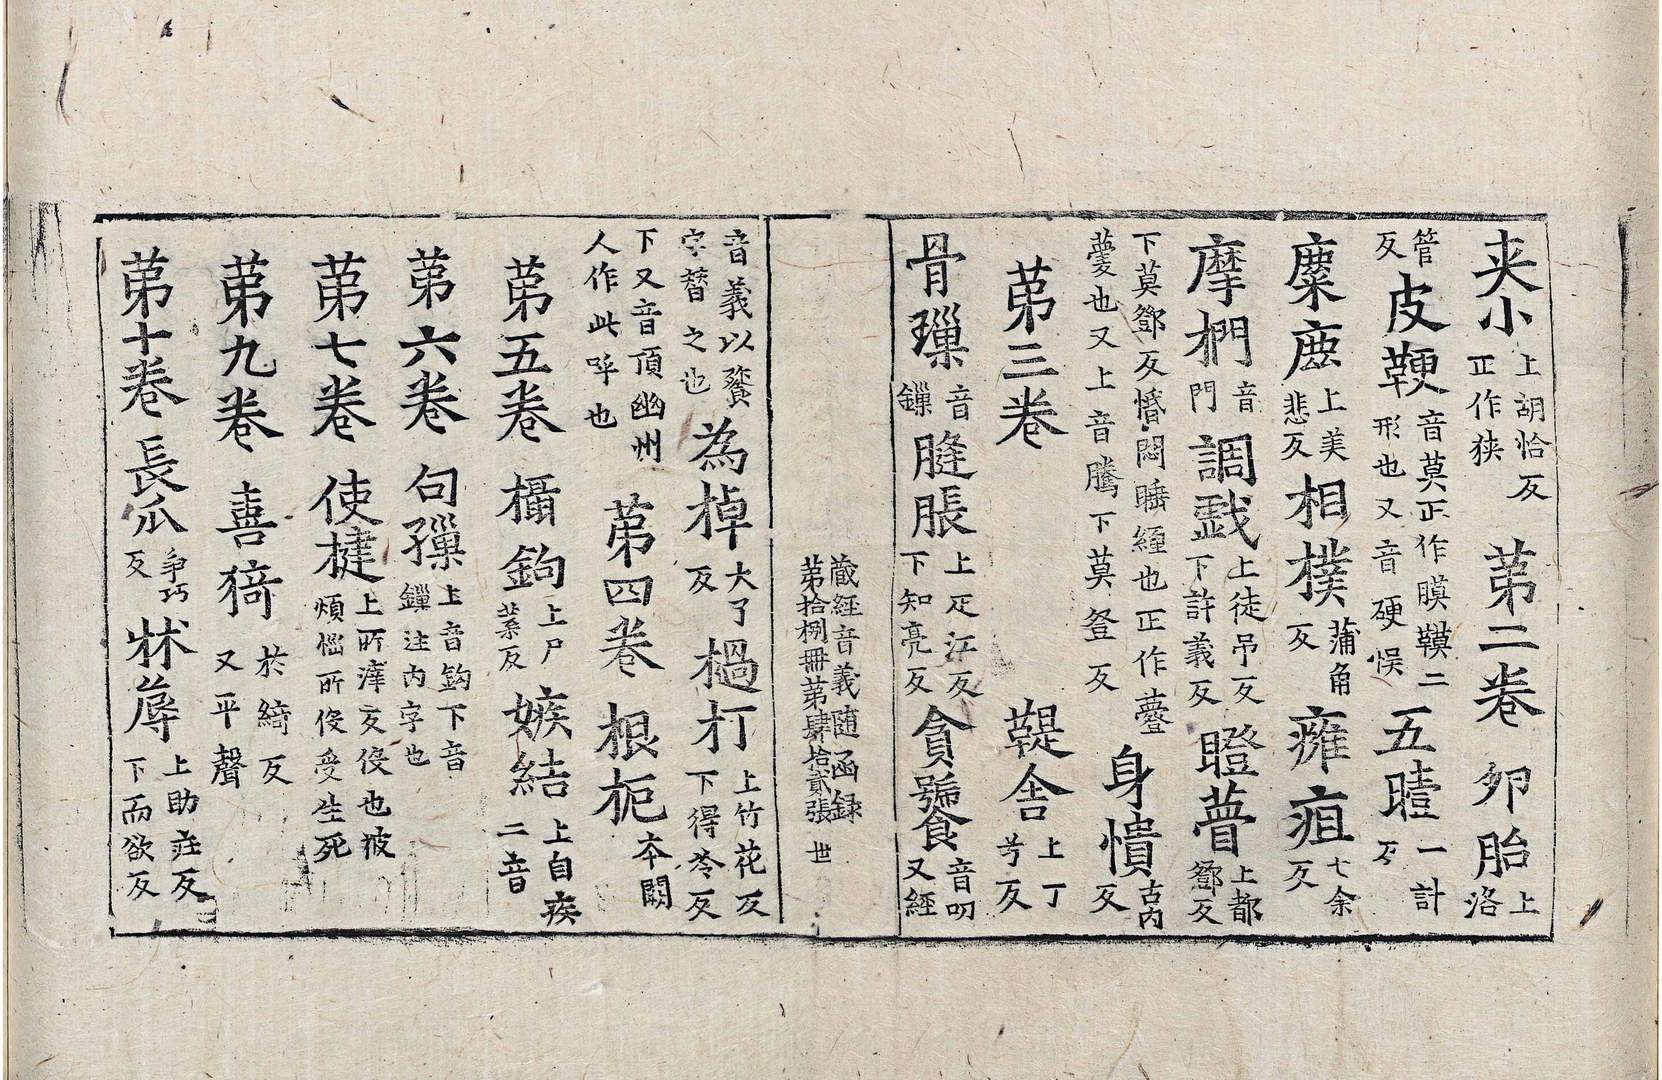 夾小上胡恰反正作狹 第二卷 卵胎上洛
管反皮鞕音莫正作膜䩞二形也又音硬悮 五曀一計反
麋鹿上美悲反相撲蒲角反癰疽七余反
摩捫音門 調戲上徒吊反下許義反瞪瞢上都鄧反
下莫鄧反惛悶睡經也正作㝱夢也又上音騰下莫登反 身憒古內反
第三卷 鞮舍上丁兮反
骨璅音鏁 膖脹上疋江反下知亮反貪饕音叨又經
藏經音義隨函録
第拾捌冊第肆拾貳張 世
音義以餮字替之也為棹大了反撾打上竹花反下得冷反
下又音頂幽州人作此呼也 第四卷 根枙夲闕
第五卷 欇鉤上尸葉反嫉結上自疾二音
第六卷 句璅上音鈎下音鏁注內字也
第七卷 使揵上所㡿反伇也彼煩惱所伇受生死
第九卷 喜猗於綺反又平聲
第十卷 長爪爭巧反牀蓐上助庄反下而欲反